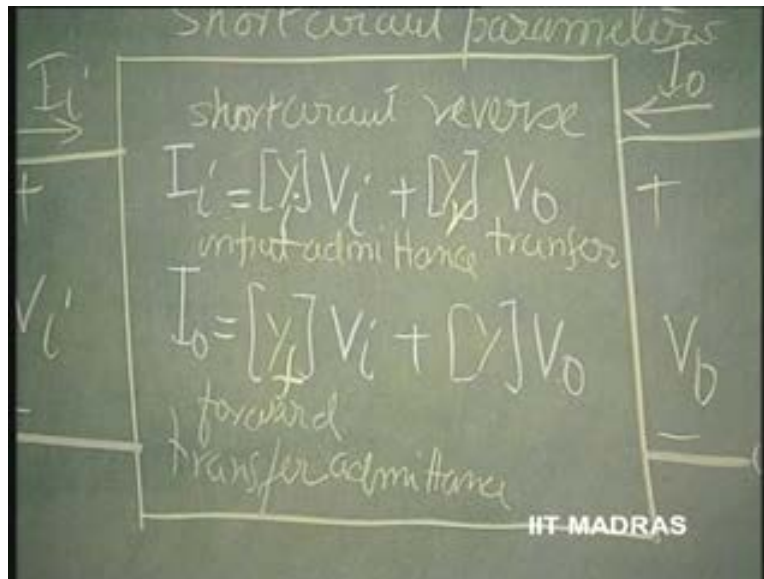 Short circuit parameters
Ii
Io
short circuit reverse
Ii = [yi] Vi + [yr] Vo
input admittance transfer
+
+
Io = [yf] Vi + [y] Vo
Vi
Vo
forward
-
-
transfer admittance
IIT MADRAS